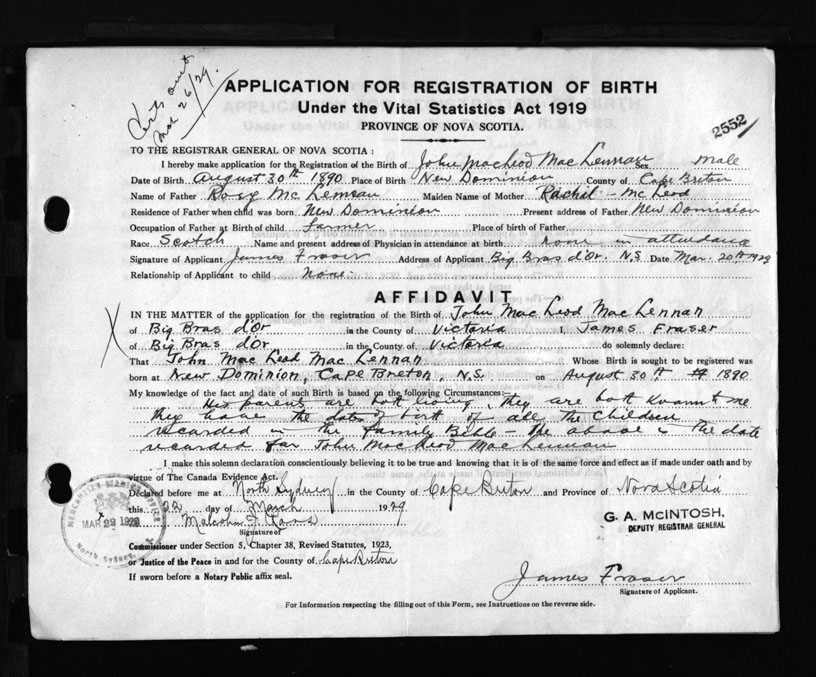 Cert. sent
Mar 26/29.
APPLICATION FOR REGISTRATION OF BIRTH
Under the Vital Statistics Act 1919
PROVINCE OF NOVA SCOTIA.
2552
TO THE REGISTRAR GENERAL OF NOVA SCOTIA:
I hereby make application for the Registration of the Birth of John MacLeod MacLennan Sex male
Date of Birth August 30th 1890 Place of Birth New Dominion County of Cape Breton
Name of Father Rory McLennan Maiden Name of Mother Rachil McLeod
Residence of Father when child was born New Dominion Present address of Father New Dominion
Occupation of Father at Birth of child Farmer Place of birth of Father
Race Scotch Name and present address of Physician in attendance at birth none in attendance
Signature of Applicant James Fraser Address of Applicant Big Bras d'Or. N.S. Date Mar. 20th 1929
Relationship of Applicant to child None.
AFFIDAVIT
IN THE MATTER of the application for the registration of the Birth of John Mac Leod Mac Lennan
of Big Bras d'Or in the County of Victoria I, James Fraser
of Big Bras d'Or in the County of Victoria do solemnly declare:
That John Mac Leod Mac Lennan Whose Birth is sought to be registered was
born at New Dominion, Cape Breton, N.S. on August 30th 1890
My knowledge of the fact and date of such Birth is based on the following Circumstances:
His parent are both living, they are both known to me
they have the dates of birth of all the children
recarded in the Family Bible - the above is the date
recarded for John MacLeod MacLennan
I make this solemn declaration conscientiously believing it to be true and knowing that it is of the same force and effect as if made under oath and by
virtue of The Canada Evidence Act.
Declared before me at North Sydney in the County of Cape Breton and Province of Nova Scotia
this 22 day of March 1929
Malcolm J
Signature of
G. A. McINTOSH,
DEPUTY REGISTRAR GENERAL
MAR 23 1929
North Sydney,
Commissioner under Section 5, Chapter 38, Revised Statutes, 1923,
or Justice of the Peace in and for the County of Cape Breton
If sworn before a Notary Public affix seal.
James Fraser
Signature of Applicant.
For Information respecting the filling out of this Form, see Instructions on the reverse side.